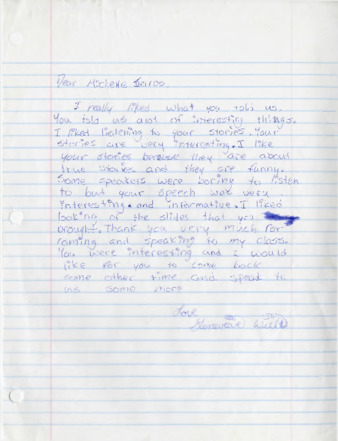 Dear Michelle
I really liked what you told us.
You told us alot of interesting things.
I liked listening to your stories. Your
stories are very interesting. I like
your stories because they are about
true stories and they are funny.
Some speakers were boring to listen
to but your speech was very
interesting. and informative. I liked
looking at the slides that you
brought. Thank you very much for
coming and speaking to my class.
You were interesting and I would
like for you to come back
some other time and speak to
us some more
Love
Genevieve